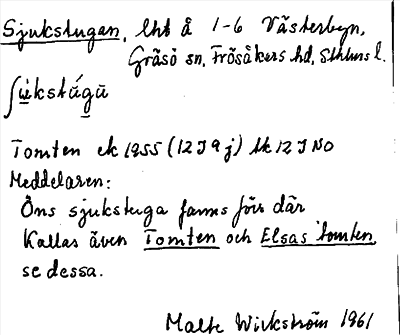 Sjukstugan, lht å 1-6 Västerbyn,
Gräsö sn, Frösåkers hd, Sthlms l.
ʃu̱kstúg̱ŭ
Tomten ek 1955 (12J9j) tk 12J NO
Meddelaren:
Öns sjukstuga fanns förr där
Kallas även Tomten och Elsas tomten,
se dessa.
Malte Wirkström 1961